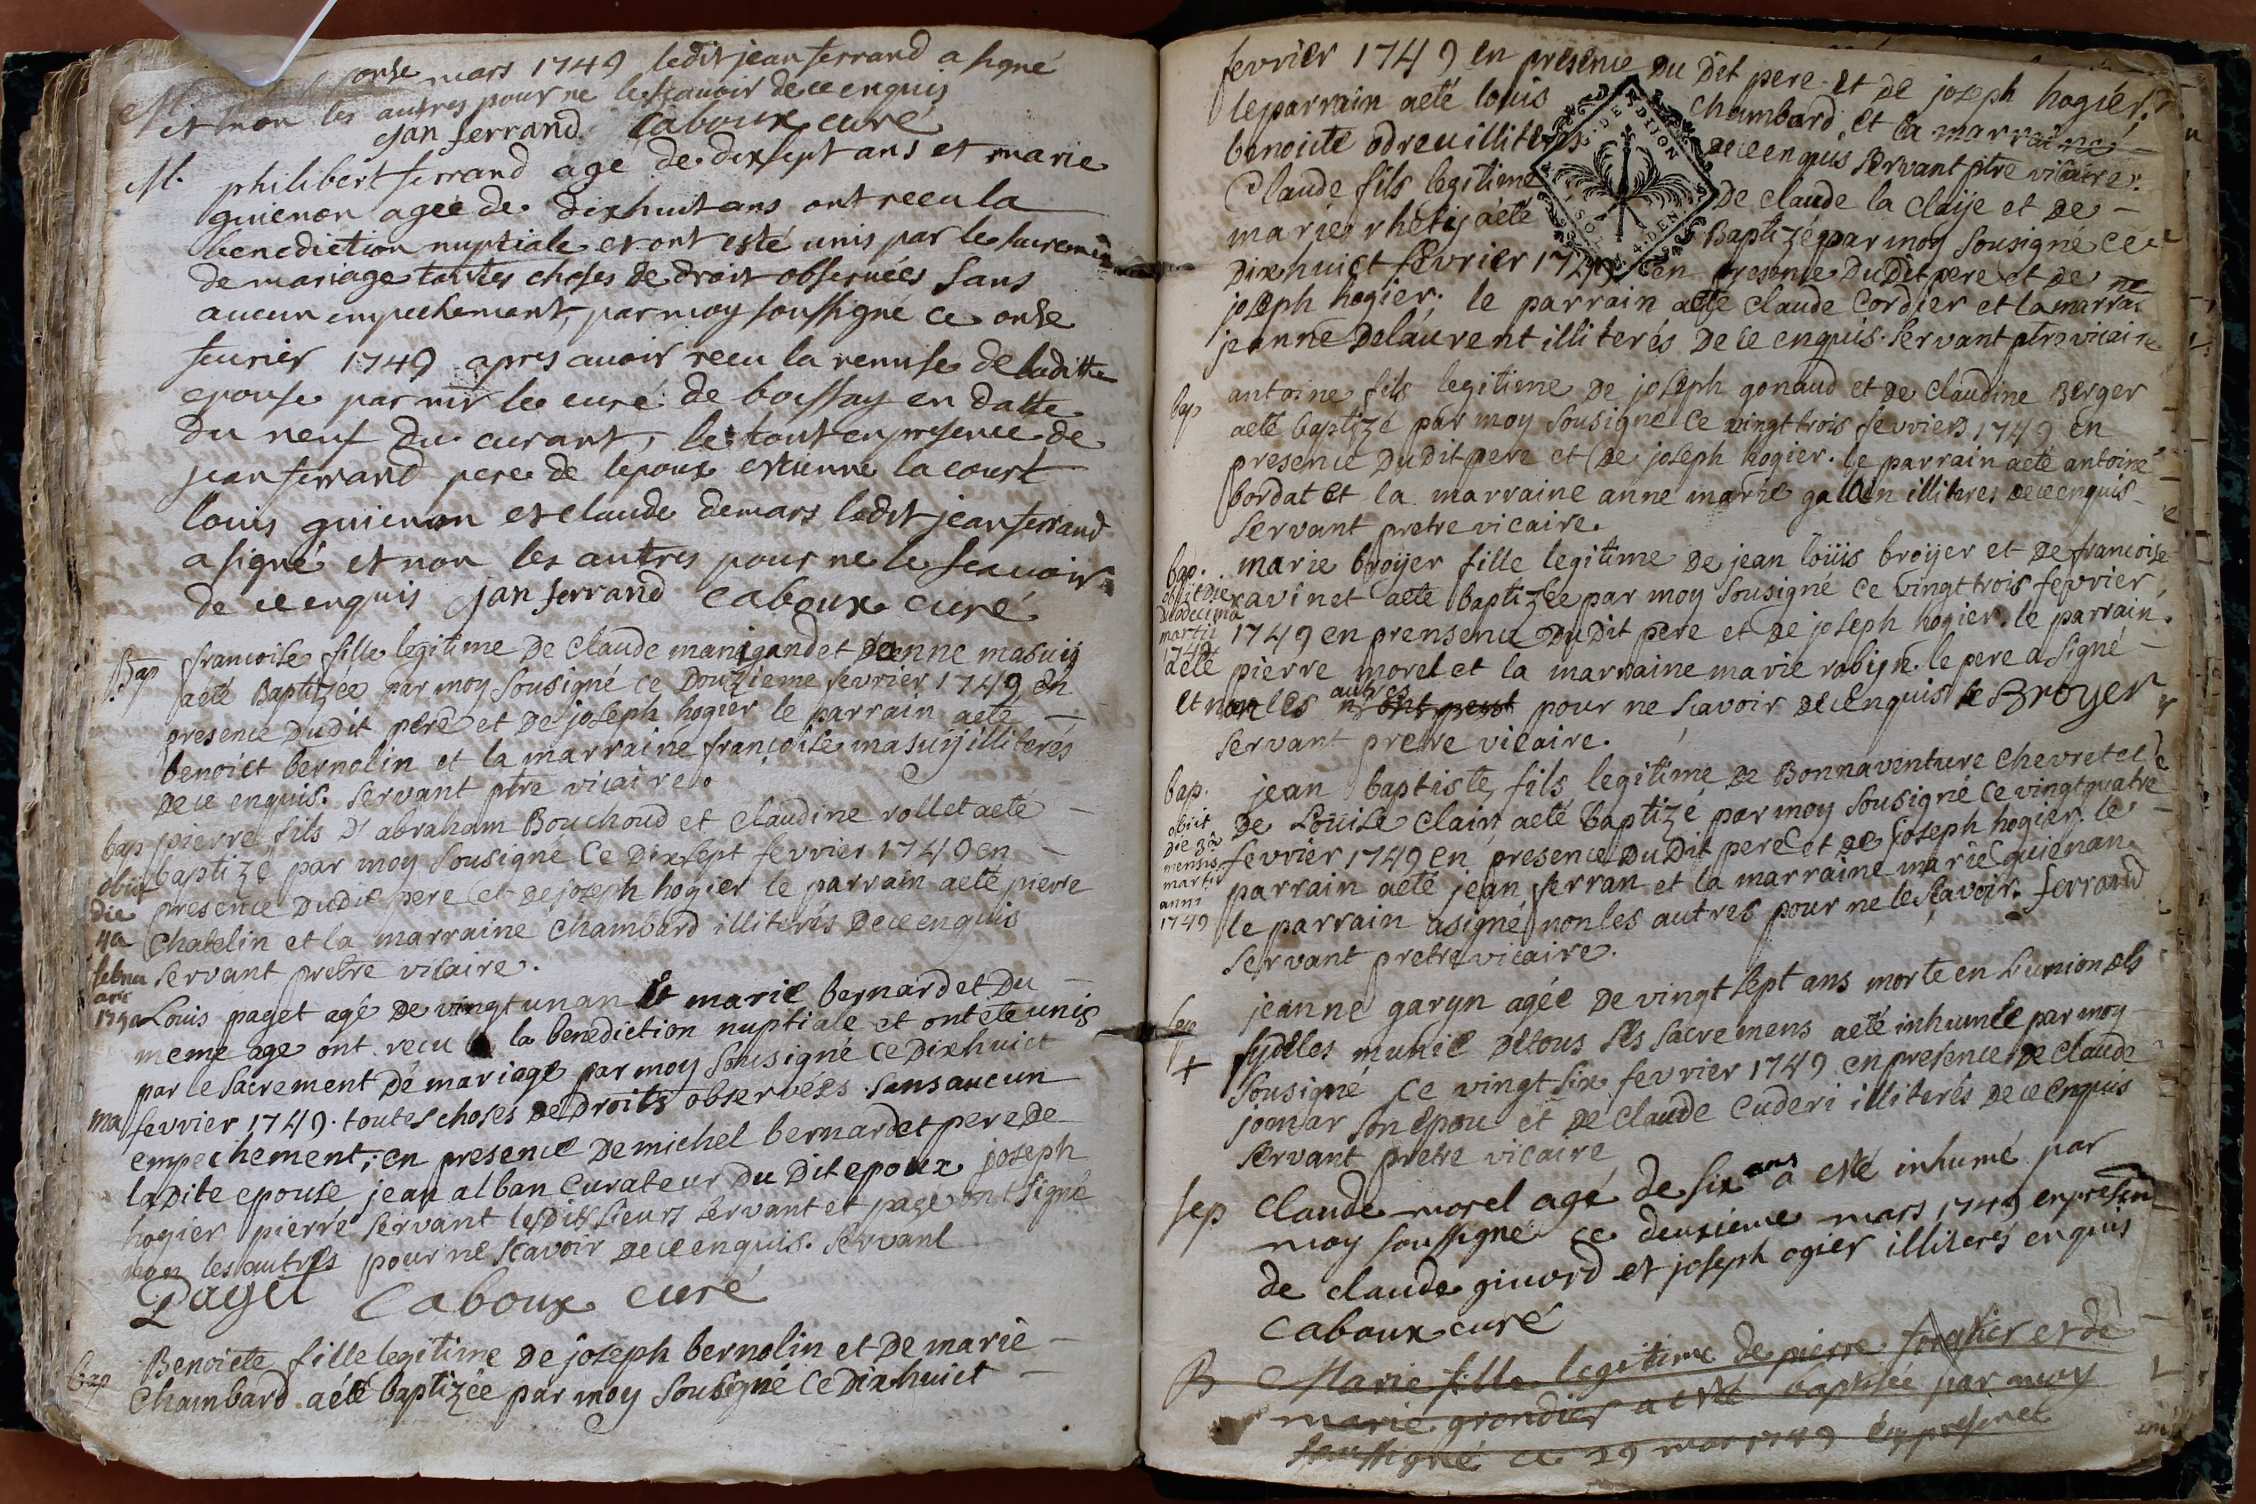 onse mars 1749 ledit jean ferrand a signé
et non les autres pour ne le scavoir de ce enquis
jan ferrand Caboux curé
M. philibert ferrand age de dixsept ans et marie
guienon agée de dixhuit ans ont receu la
benediction nuptiale et ont esté unis par le sacrement
de mariage toutes choses de droit observées sans
aucun empechement, par moy soussigné ce onse
feurier 1749 apres auoir receu la remise de laditte
epouse par mr le curé de boissay en datte
du neuf du curant, le tout en presence de
jean ferrand pere de lepoux estienne la court
louis guienon et claude demars ledit jean ferrand
a signé et non les autres pour ne le scauoir
de ce enquis jan ferrand Caboux curé
Bap francoise fille legitime De Claude manigand et Deanne masuij
aeté Baptizée par moy sousigné ce Douzieme fevrier 1749 en
presence Dudit pere et De joseph hogier le parrain aeté
benoict bernolin et la marraine françoise masuij illiterés
De ce enquis. servant ptre vicaire.
bap pierre fils D'abraham Bouchoud et Claudine rollet aeté
baptizé par moy sousigné Ce Dixsept fevrier 1749 en
obiit
die
4a
presence Dudit pere et de joseph hogier le parrain aeté pierre
Chatelin et la marraine Chambard illiterés De ce enquis
servant pretre vicaire.
Louis paget agé De vingt un an Et marie bernardet Du
meme age ont recu la benediction nuptiale et ont été unis
par le sacrement de mariage par moy sousigné ce Dixhuict
ma fevrier 1749. toutes choses De Droits observées sans aucun
empechement, en presence De michel bernardet pere De
la Dite epouse jean alban Curateur Du Dit epoux joseph
hogier pierre servant lesdits sieurs servant et page ont signé
non les autres pour ne scavoir De ce enquis. servant
Paget Caboux curé
bap Benoicte fille legitime De joseph bernolin et De marie
Chambard aeté baptizée par moy sousigné Ce Dixhuict
fevrier 1749 en presence Du Dit pere et De joseph hogier.
le parrain aeté louis Chambard et la marraine
benoicte odreu illiterés De ce enquis servant ptre vicaire.
Claude fils legitime De Claude la Claije et De
marie rhetij aeté Baptizé par moy sousigné ce
Dixhuict fevrier 1749 en presence Du Dit pere et De
joseph hogier. le parrain aeté Claude Cordier et la marraine
jeanne Delaurent illiterés De ce enquis. servant ptre vicaire
bap antoine fils legitime De joseph gonaud et De Claudine Berger
aeté baptizé par moy sousigné Ce vingt trois fevriers 1749 en
presence Du Dit pere et De joseph hogier. le parrain aeté antoine
bordat Et la marraine anne marie gallen illiteres De ce enquis
servant pretre vicaire.
bap. marie broijer fille legitime De jean loüis broijer et De francoise
ravinet aeté baptizée par moy sousigné Ce vingt trois fevrier
obiit die
duodecima
martii
1749
1749 en prensence Du Dit pere et De joseph hogier. le parrain
aeté pierre morel et la marraine marie robijn. le pere a signé
et non les autres n'ont peut pour ne scavoir De ce enquis le Broyer
servant pretre vicaire.
bap. jean baptiste fils legitime De Bonnaventure Chevret et
De Loüise Clain aeté baptizé par moy sousigné Ce vingt quatre
obiit
die 3a
mensis
martii
anni
1749
fevrier 1749 en presence Du Dit pere et De joseph hogier. le
parrain aeté jean ferran et la marraine marie guienan
le parrain asigné, non les autres pour ne le scavoir. ferrand
servant pretre vicaire.
sep jeanne garyn agée De vingt sept ans morte en L'union des
+ fydelles munie De tous Ses sacremens aeté inhumée par moy
sousigné ce vingt six fevrier 1749 en presence De Claude
jomar son epou et De Claude Cuderi illiterés De ce enquis
servant pretre vicaire
sep Claude morel agé de six ans a esté inhumé par
moy soussigné ce deuxieme mars 1749 en presen
de claude giuord et joseph ogier illiterés enquis
Caboux curé
B Marie fille legitime de pierre et de
marie grondier a esté baptisée par moy
soussigné ce 29 mar 1749 en presence